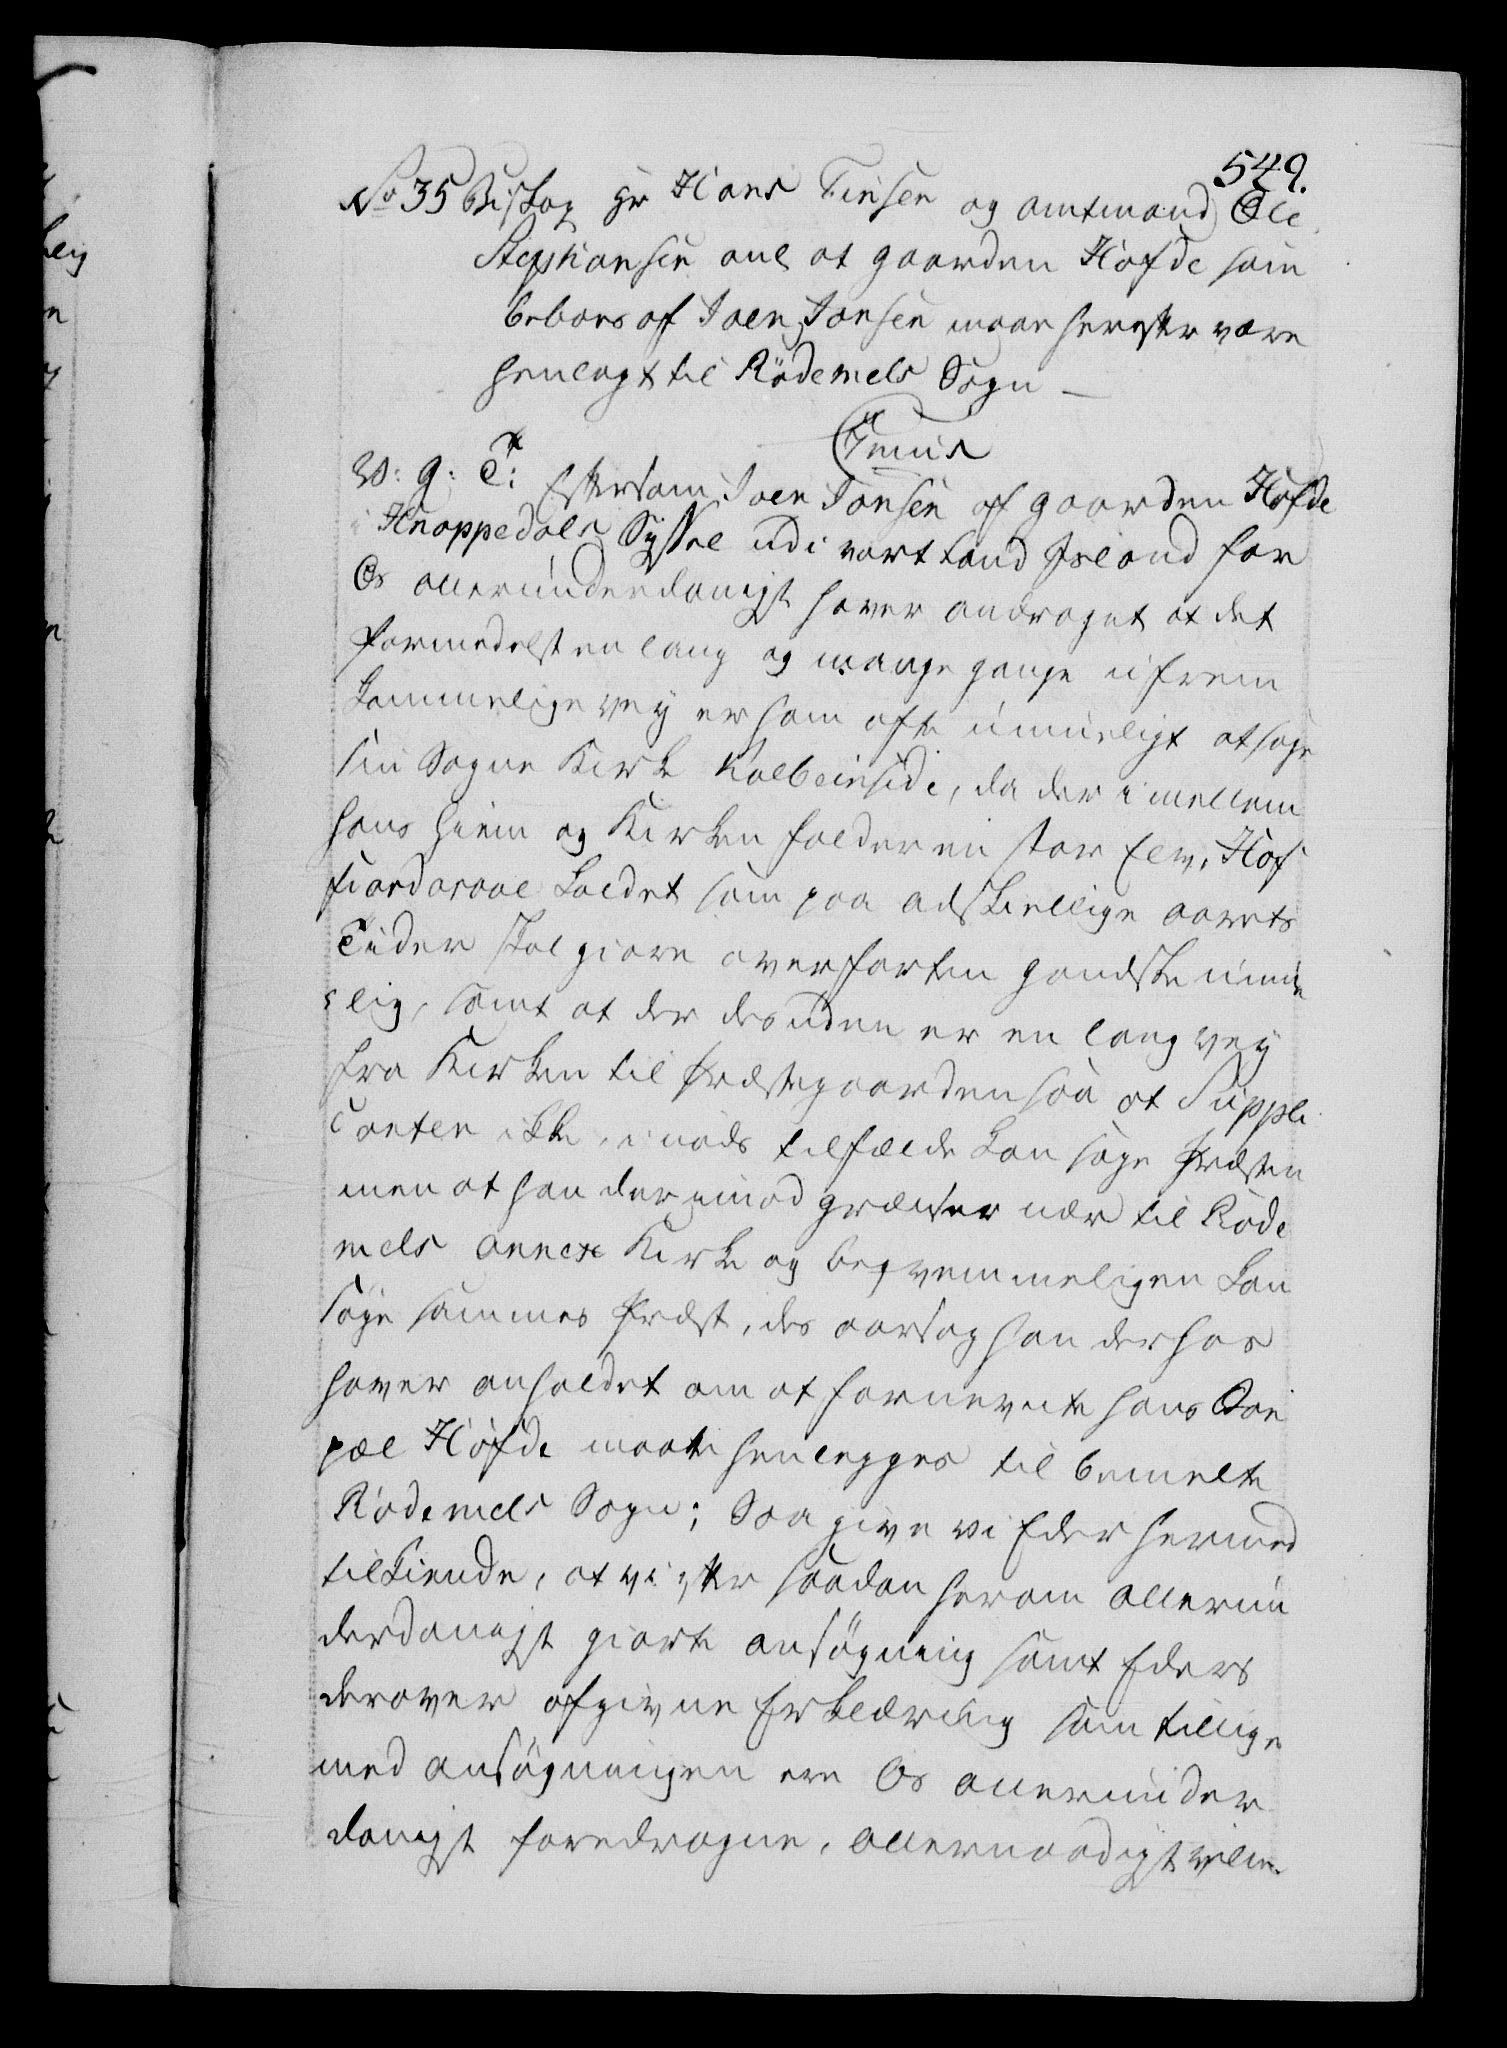 549.
No 35 Biskop Hr Hans Finsen og amtmand Ole
Stephansen anl at gaarden Höfde som
beboes af Joen Jonsen maae herefter være
henlagt til Rödemels Sogn
C7mus
V: G: T: Eftersom Joen Jonsen af gaarden Höfde
i Hnappedals Syssel udi vort Land Jsland for
Os allerunderdanigst haver andraget at det
formedelst en lang og mange gange ufrem
kommelige vey er ham ofte umueligt at søge
sin Sogne Kirke Kolbeinstade, da der imellem
hans hiem og Kirken falder en stor Elv, Hof
fiordaraae kaldet som paa adskillige aarets
Tider skal giøre overfarten gandske umue
lig, samt at der desuden er en lang vey
fra Kirken til Præstegaarden saa at Suppli
canten ikke i nøds tilfælde kan søge Præsten
men at han derimod grændser nær til Röde
mels annex Kirke og beqvemmeligen kan
søge sammes Præst, des aarsag han derhos
haver anholdet om at fornevnte hans Boe
pæl Höfde maatte henlegges til bemelte
Rödemels Sogn; Saa give vi Eder hermed
tilkiende, at vi efter saadan herom allerun
derdanigst giorte ansøgning samt Eders
derover afgivne Erklæring som tillige
med ansøgningen ere Os allerunder
danigst foredragne, allernaadigst ville